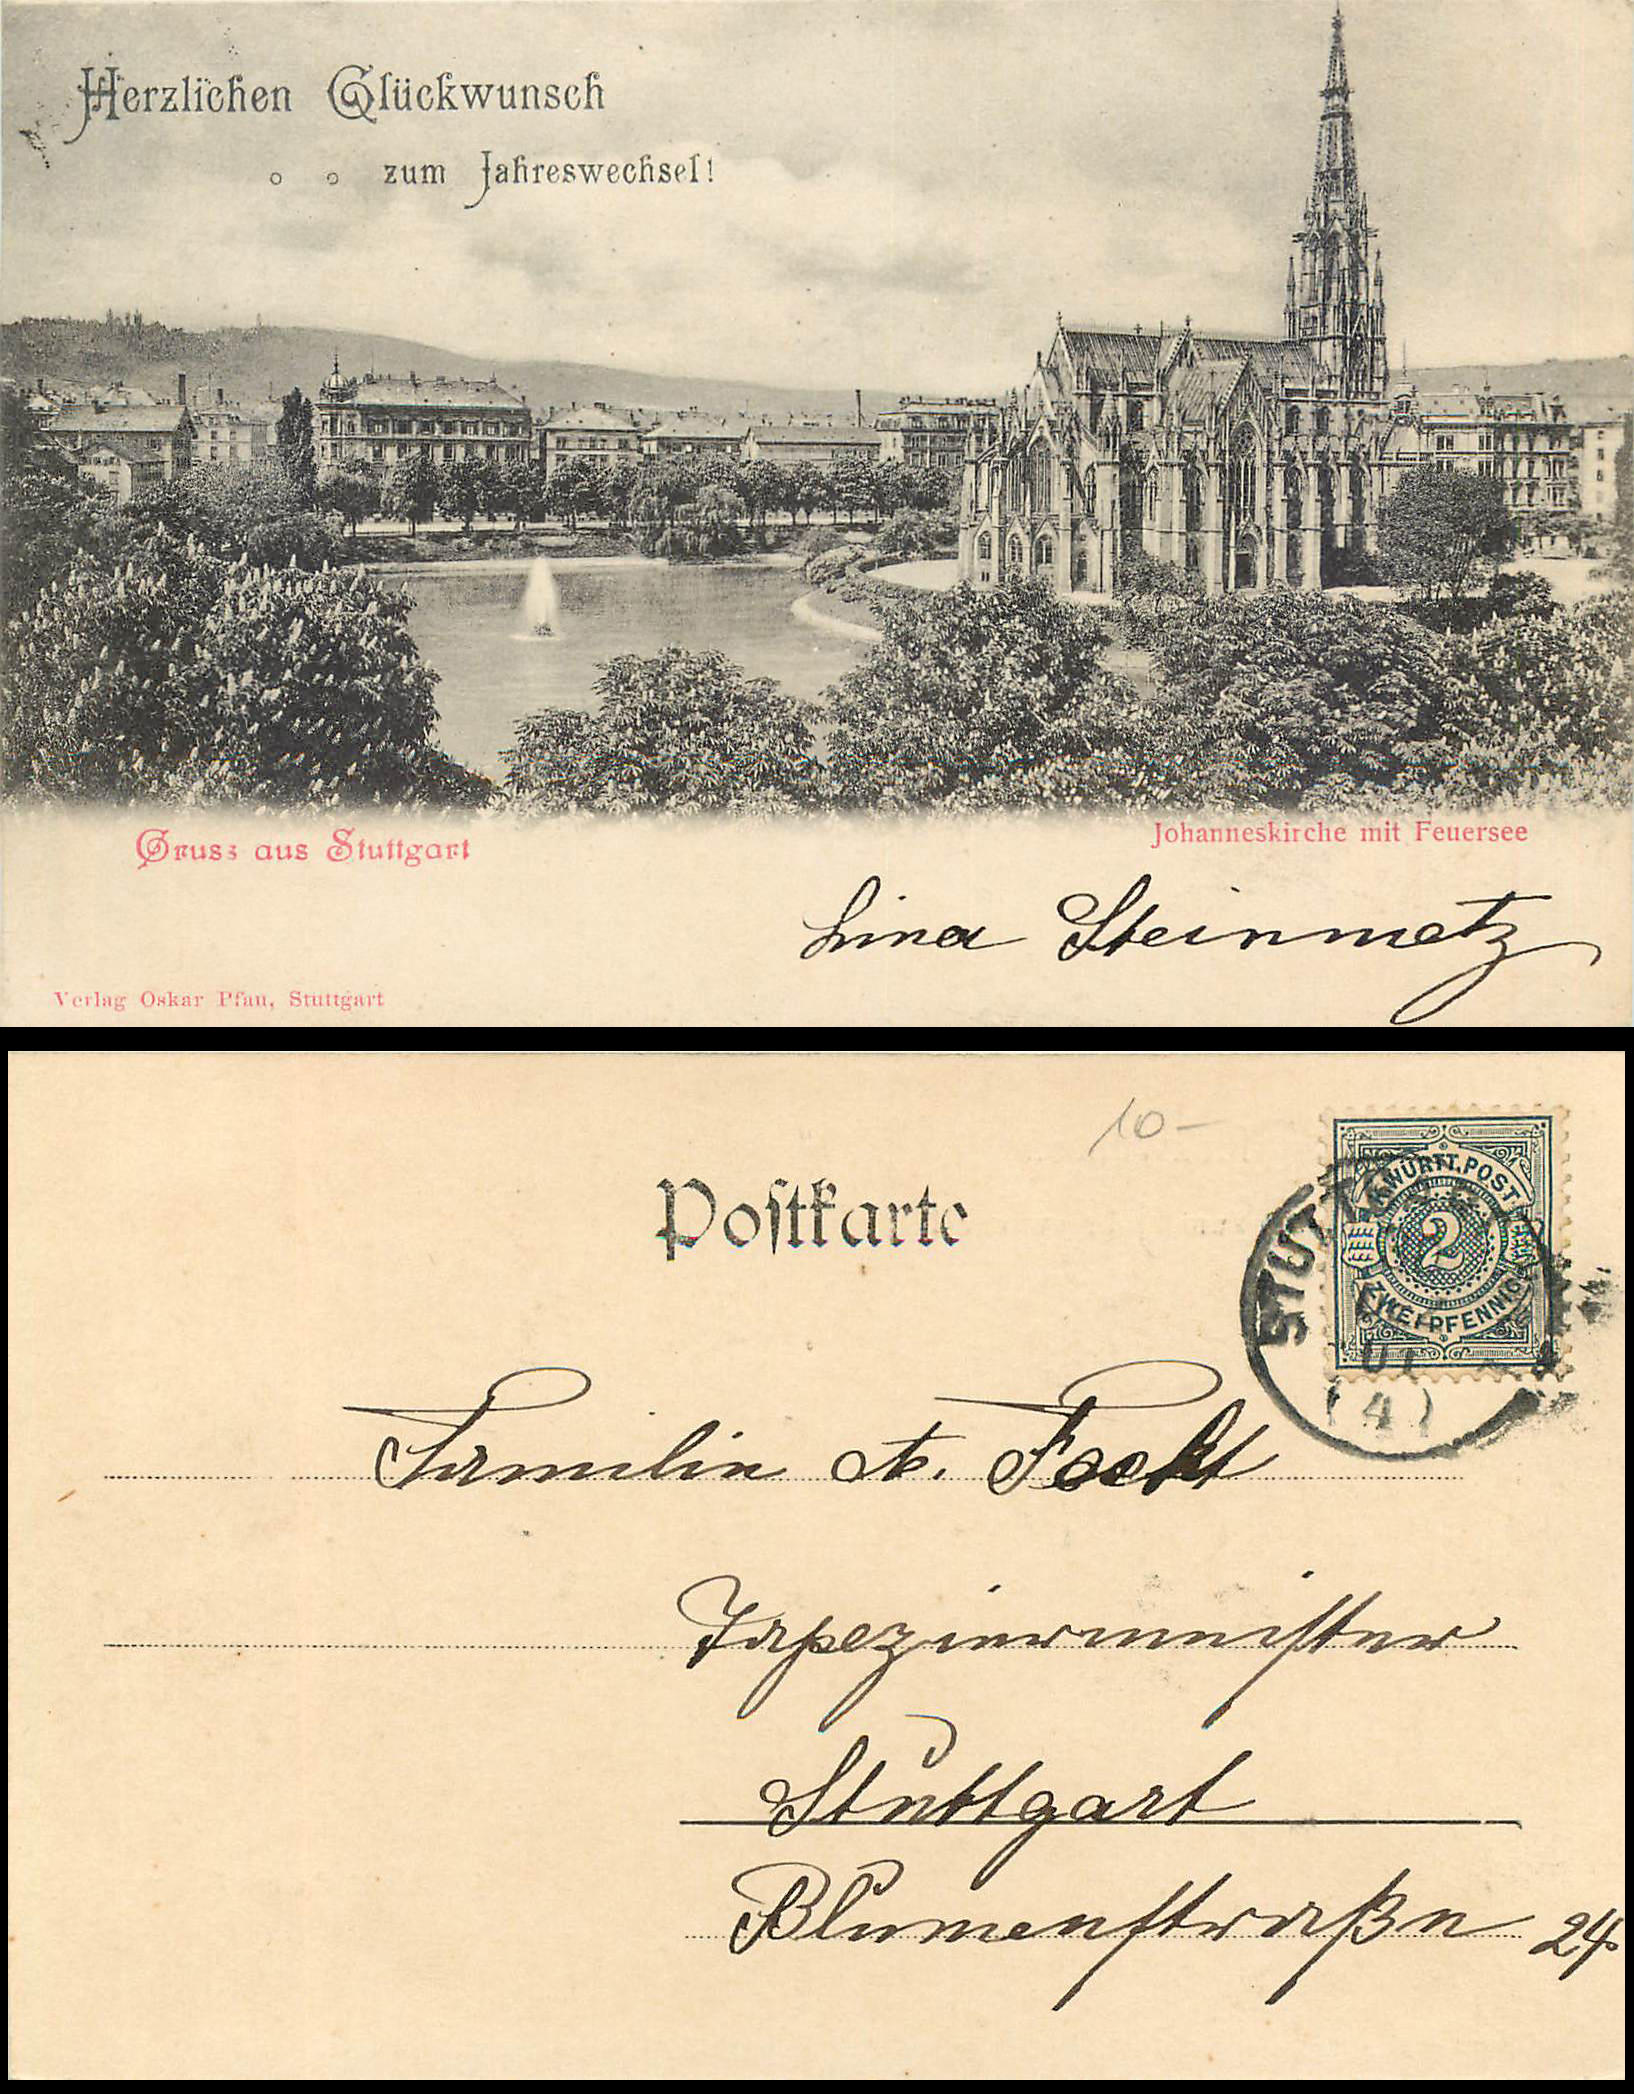 Herzlichen Glückwunsch
zum Jahreswechsel!
Gruss aus Stuttgart
Johanneskirche mit Feuersee
Lina Steinmetz
Verlag Oskar Pfau, Stuttgart
10-
Postkarte
K.WÜRTT.POST
2
ZWEI PFENNIG
STUT
01
(4)
Familie A.
Tapeziermeister
Stuttgart
Blumenstraße 24